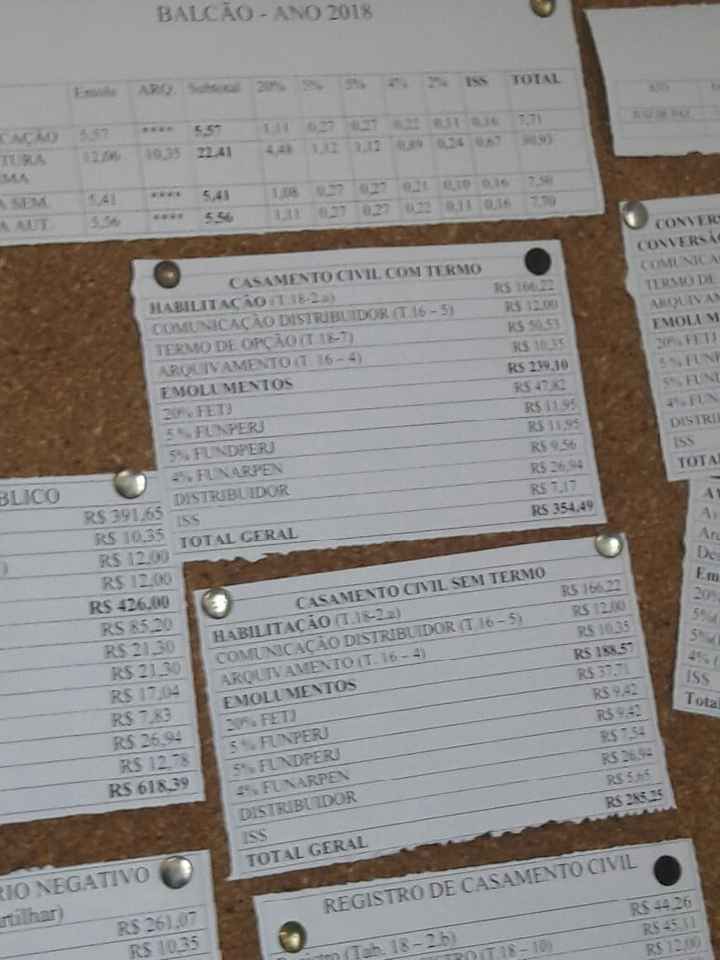 BALCÃO - ANO 2018
Emolu ARQ. Subtotal 20% 5% 5% 4% 2% ISS TOTAL
CAÇÃO 5,57 **** 5,57 1,11 0,27 0,27 0,22 0,11 0,16 7,71
TURA 12,06 10,35 22,41 4,48 1,12 1,12 0,89 0,24 0,67 30,93
MA
A SEM. 5,41 **** 5,41 1,08 0,27 0,27 0,21 0,10 0,16 7,50
A AUT. 5,56 **** 5,56 1,11 0,27 0,27 0,22 0,11 0,16 7,70
CASAMENTO CIVIL COM TERMO
HABILITAÇÃO (T.18-2.a) R$ 166,22
COMUNICAÇÃO DISTRIBUIDOR (T.16 – 5) R$ 12,00
TERMO DE OPÇÃO (T.18-7) R$ 50,53
ARQUIVAMENTO (T. 16 – 4) R$ 10,35
EMOLUMENTOS R$ 239,10
20% FETJ R$ 47,82
5 % FUNPERJ R$ 11,95
5% FUNDPERJ R$ 11,95
4% FUNARPEN R$ 9,56
DISTRIBUIDOR R$ 26,94
ISS R$ 7,17
TOTAL GERAL R$ 354,49
CONVERS
CONVERSÃ
COMUNICA
TERMO DE
ARQUIVAM
EMOLUM
20% FETJ
5 % FUN
5% FUN
4% FUN
DISTRI
ISS
TOTA
BLICO
R$ 391,65
R$ 10,35
R$ 12,00
R$ 12,00
R$ 426,00
R$ 85,20
R$ 21,30
R$ 21,30
R$ 17,04
R$ 7,83
R$ 26,94
R$ 12,78
R$ 618,39
CASAMENTO CIVIL SEM TERMO
HABILITAÇÃO (T.18-2.a) R$ 166,22
COMUNICAÇÃO DISTRIBUIDOR (T.16 – 5) R$ 12,00
ARQUIVAMENTO (T. 16 – 4) R$ 10,35
EMOLUMENTOS R$ 188,57
20% FETJ R$ 37,71
5 % FUNPERJ R$ 9,42
5% FUNDPERJ R$ 9,42
4% FUNARPEN R$ 7,54
DISTRIBUIDOR R$ 26,94
ISS R$ 5,65
TOTAL GERAL R$ 285,25
Em
20%
5%
5%
4% (
ISS
Total
RIO NEGATIVO
artilhar)
R$ 261,07
R$ 10,35
REGISTRO DE CASAMENTO CIVIL
(Tab. 18 – 2.b) R$ 44,26
(T.18 – 10) R$ 45,11
R$ 12,00